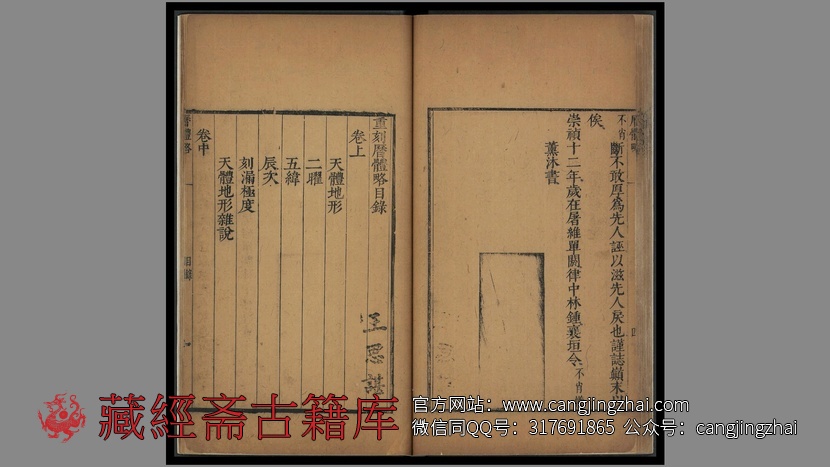 不肖斷不敢厚為先人誣以滋先人戾也謹誌巔末
俟
崇禎十二年歲在屠維單閼律中林鍾襄垣令不肖
薰沐書
重刻曆體略目錄
卷上
天體地形
二曜
五緯
辰次
刻漏極度
天體地形雜說
卷中
曆體略
目錄
王思
藏經斋古籍库
官方网站：www.cangjingzhai.com
微信同QQ号：317691865 公众号：cangjingzhai